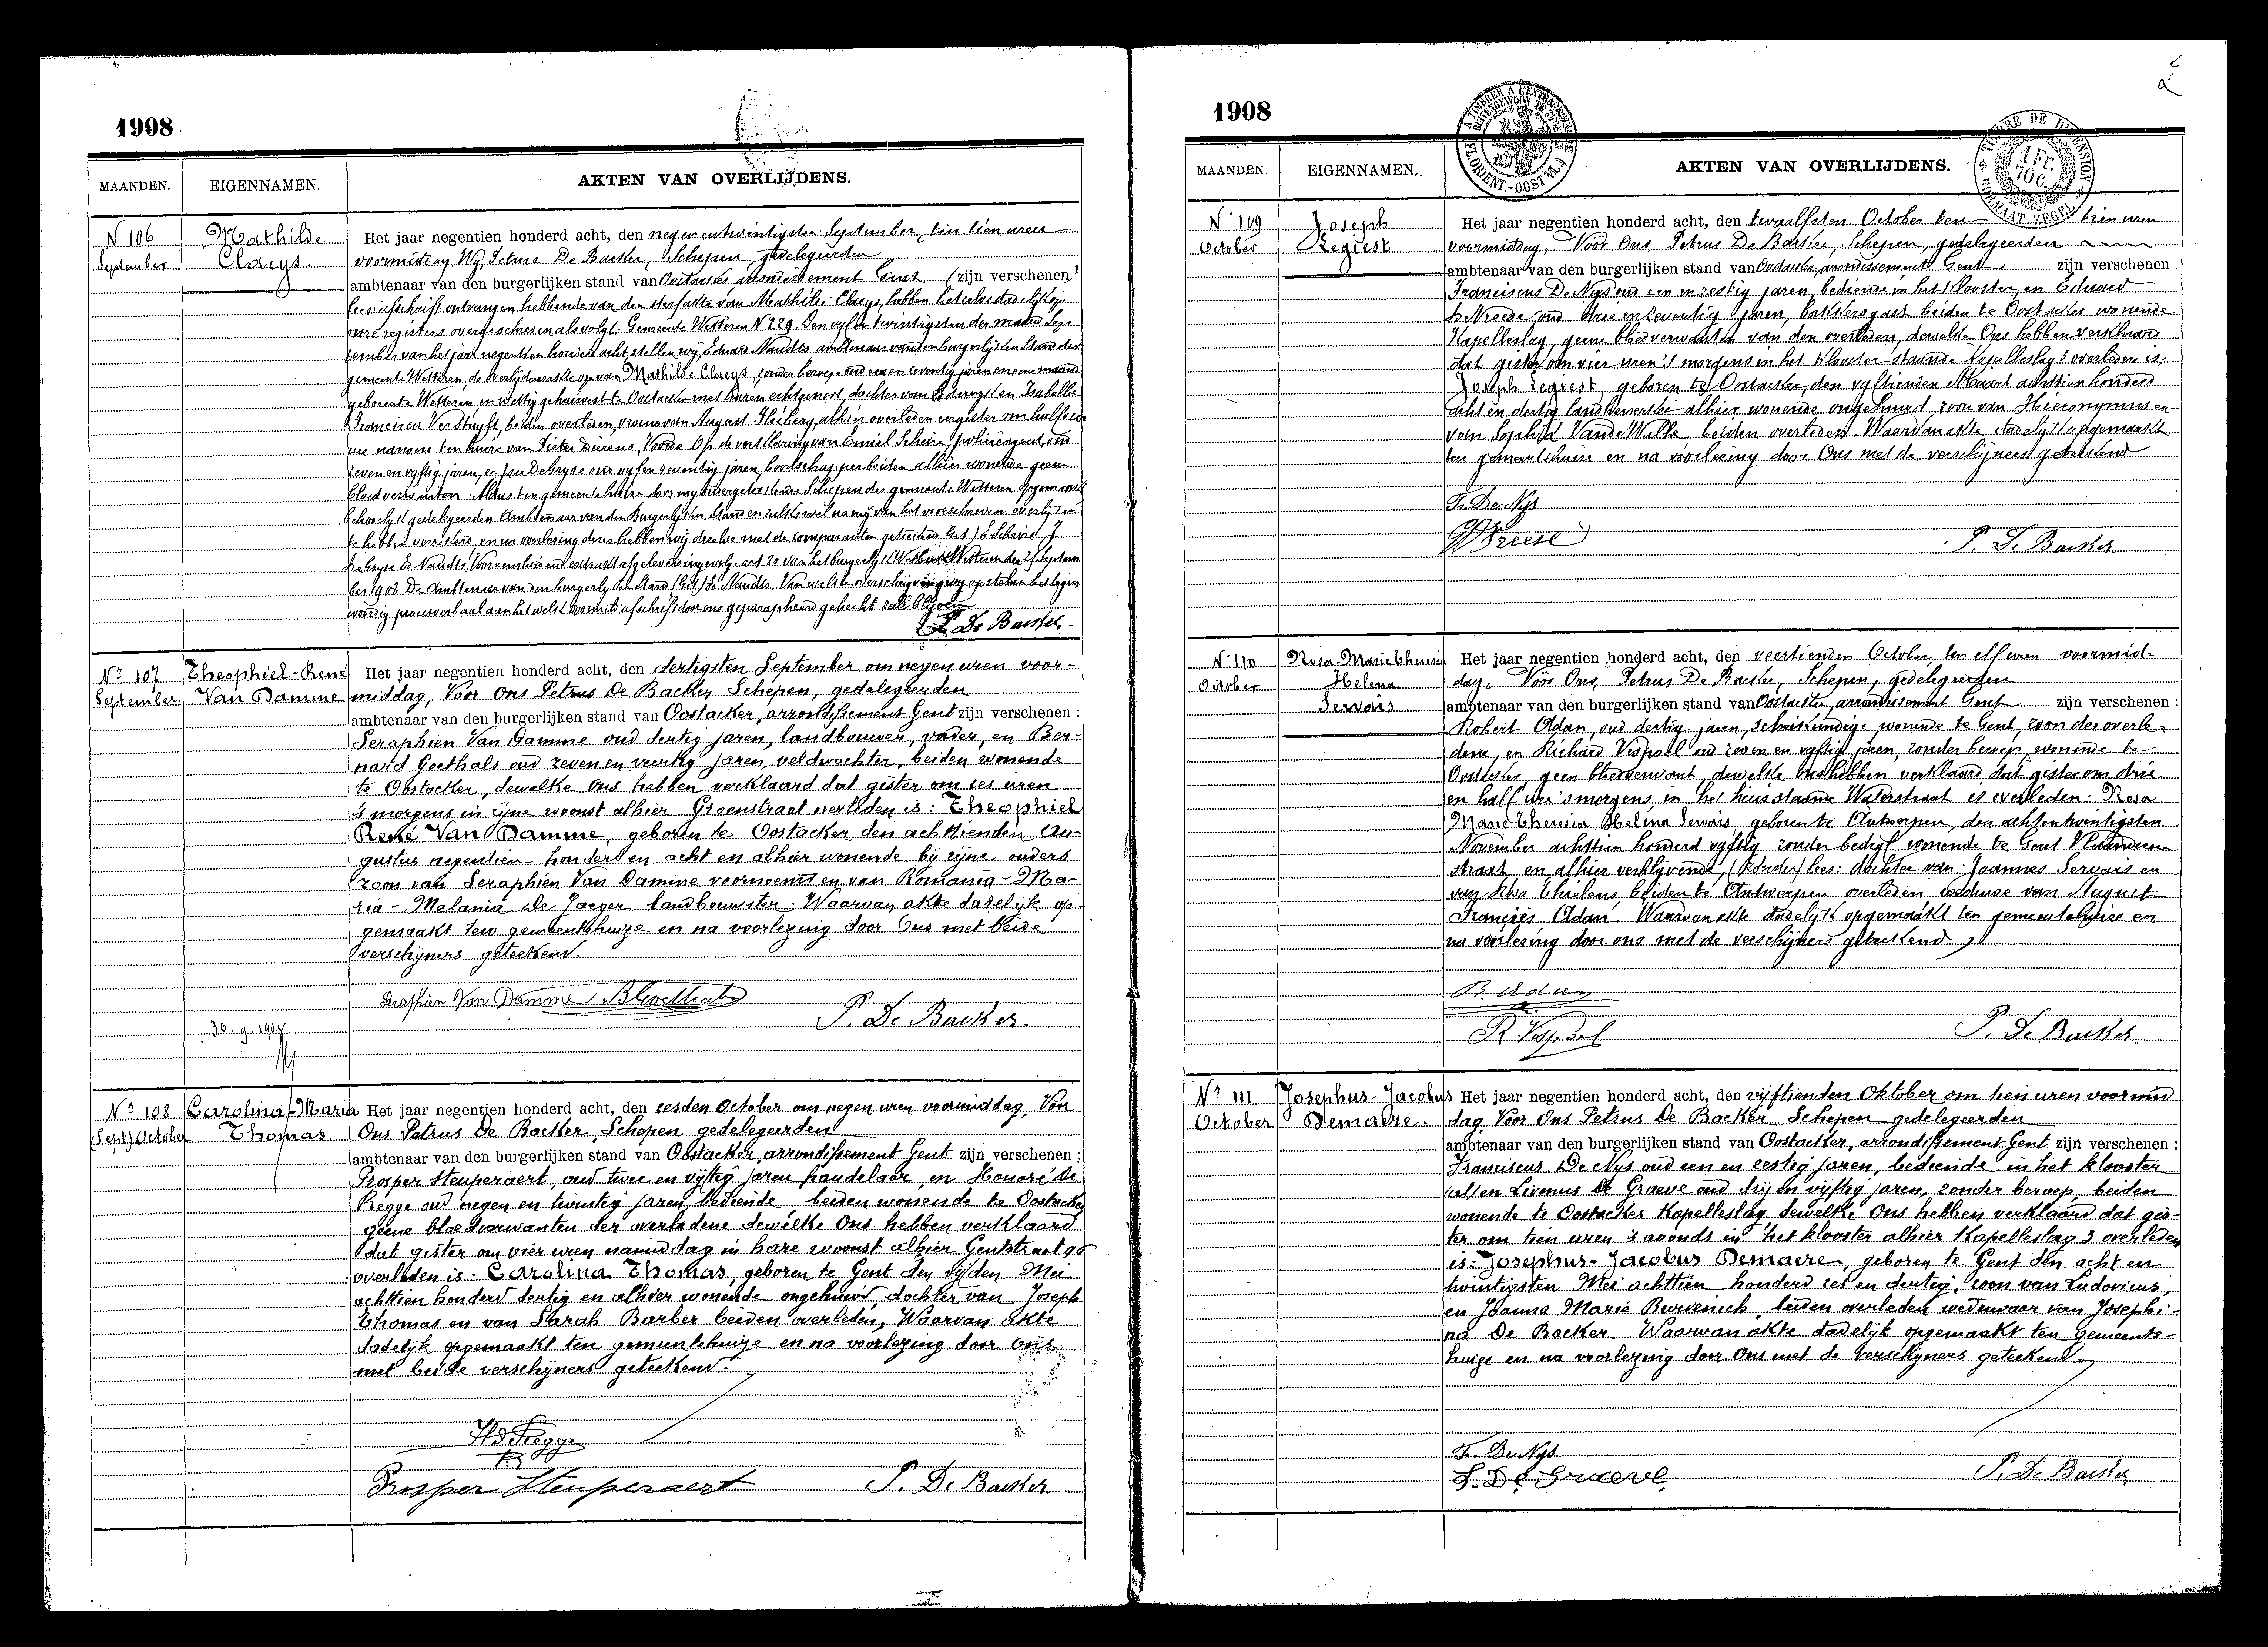 1908
MAANDEN. EIGENNAMEN. AKTEN VAN OVERLIJDENS.
N 106
September
Mathilde
Claeys.
Het jaar negentien honderd acht, den negenentwintigsten September, ten tien uren
voormiddag Wij Petrus De Backer, Schepen, gedelegeerden
ambtenaar van den burgerlijken stand van Oostacker arrondissement Gent (zijn verschenen,)
lees: afschrift ontvangen hebbende van den sterfakte van Mathilde Claeys, hebben hetzelve dadelijk op
onze registers overgeschreven als volgt: Gemeente Wetteren N 229. Den vijf en twintigsten der maand Sep
tember van het jaar negentien honderd acht stellen wij, Eduard Naudts ambtenaar van den burgerlijken Stand der
gemeente Wetteren, de overlijdensakte op van Mathilde Claeys, zonder beroep oud een en zeventig jaren en eene maand
geboren te Wetteren en wettig gehuisvest te Oostacker met haren echtgenoot, dochter van Lodewyk en Isabella
Francisca Verstuyft, beiden overleden, vrouw van August Heiberg, alhier overleden en gister om half een
ure namen ten huize van Pieter Dierens, Voorde Op de verklaring van Emiel Scheire policieagent, oud
zeven en vyftig jaren, en Jan De Gryse oud vyf en zeventig jaren boodschapper beiden alhier wonende geen
bloedverwanten. Aldus ten gemeentehuize door my ondergeteekende Schepen der gemeente Wetteren opgemaakt
behoorlijk gedelegeerden Ambtenaar van den Burgerlijken Stand en zulks wel na mij van het voorschreven overlijden
te hebben verzekerd, en na voorlezing dezer hebben wij dezelve met de comparanten geteekend (Get.) E. Scheire J
De Gryse Ed Naudts. Voor eensluidend extrakt afgeleverd ingevolge art. 80 van het burgerlijk Wetboek Wetteren den 25 Septem
ber 1908 De Ambtenaar van den burgerlyken Stand (Get.) Ed. Naudts. Van welke overschrijving wij opstellen het tegen
woordig procesverbaal aan hetwelk voormeld afschrift door ons geparapheerd gehecht zal blijven
P. De Backer.
Nr 107
September
Theophiel-René
Van Damme
Het jaar negentien honderd acht, den dertigsten September om negen uren voor-
middag, Voor Ons Petrus De Backer Schepen, gedelegeerden
ambtenaar van den burgerlijken stand van Oostacker, arrondissement Gent zijn verschenen :
Seraphien Van Damme oud dertig jaren, landbouwer, vader, en Ber-
nard Goethals oud zeven en veertig jaren, veldwachter, beiden wonende
te Oostacker, dewelke Ons hebben verklaard dat gister om zes uren
's morgens in zijne woonst alhier Groenstraat overleden is: Theophiel
René Van Damme, geboren te Oostacker den achttienden Au-
gustus negentien honderd en acht en alhier wonende bij zijne ouders
zoon van Seraphien Van Damme voornoemd en van Romania-Ma-
ria-Melanie De Jaeger landbouwster. Waarvan akte dadelijk op
gemaakt ten gemeentehuize en na voorlezing door Ons met beide
verschijners geteekend.
Seraphien Van Damme B Goethals
P. De Backer.
30-9-1908
Nr 108
(Sept) October
Carolina-Maria
Thomas
Het jaar negentien honderd acht, den zesden October om negen uren voormiddag, Voor
Ons Petrus De Backer, Schepen gedelegeerden
ambtenaar van den burgerlijken stand van Oostacker, arrondissement Gent zijn verschenen :
Prosper Steuperaert, oud twee en vijftig jaren handelaar, en Honoré De
Regge oud negen en twintig jaren, bediende beiden wonende te Oostacker
geene bloedverwanten der overledene dewelke Ons hebben verklaard
dat gister om vier uren namiddag in hare woonst alhier Gentstraat 90
overleden is: Carolina Thomas, geboren te Gent den vijfden Mei
achttien honderd dertig en alhier wonende ongehuwd, dochter van Joseph
Thomas en van Sarah Barber beiden overleden, Waarvan akte
dadelijk opgemaakt ten gemeentehuize en na voorlezing door ons
met beide verschijners geteekend.
Hd Regge
Prosper Steuperaert P. De Backer
1908
MAANDEN. EIGENNAMEN. AKTEN VAN OVERLIJDENS.
N° 109
October
Joseph
Segrest
Het jaar negentien honderd acht, den twaalfsten October ten tien uren
voormiddag, Voor Ons Petrus De Backer, Schepen, gedelegeerden
ambtenaar van den burgerlijken stand van Oostacker, arrondissement Gent zijn verschenen
Franciscus De Nys oud een en zestig jaren, bediende in het klooster, en Eduard
De Vreese oud drie en zeventig jaren, bakkersgast beiden te Oostacker wonende
Kapelleslag, geene bloedverwanten van den overleden, dewelke Ons hebben verklaard
dat gister om vier uren 's morgens in het klooster staande Kapelleslag 3 overleden is:
Joseph Segrest, geboren te Oostacker, den vyftienden Maart achttien honderd
acht en dertig landbewerker alhier wonende ongehuwd zoon van Hieronymus en
van Sophia Vande Walle beiden overleden. Waarvan akte dadelijk opgemaakt
ten gemeentehuize en na voorlezing door Ons met de verschijners geteekend
Fr. De Nys
P. De Backer
N° 110
October
Rosa-Maria Theresia
Helena
Servais
Het jaar negentien honderd acht, den veertienden October ten elf uren voormid-
dag. Voor Ons, Petrus De Backer, Schepen, gedelegeerden
ambtenaar van den burgerlijken stand van Oostacker, arrondissement Gent zijn verschenen :
Robert Adan, oud dertig jaren, scheikundige wonende te Gent, zoon der overle-
dene, en Richard Vispoel oud zeven en vyftig jaren, zonder beroep, wonende te
Oostacker geen bloedverwant, dewelke Ons hebben verklaard dat gister om drie
en half ure 's morgens, in het huis staande Waterstraat is overleden: Rosa
Maria Theresia Helena Servais geboren te Antwerpen, den achtentwintigsten
November achttien honderd vyftig zonder bedryf wonende te Gent Vlaanderen
straat en alhier verblyvende, (zonder) lees: dochter van Joannes Servais en
van Thielens, beiden te Antwerpen overleden weduwe van August
François Adan. Waarvan akte dadelijk opgemaakt ten gemeentehuize en
na voorlezing door ons met de verschijners geteekend
R. Adan
R Vispoel
P. De Backer
Nr 111
October
Josephus-Jacobus
Demaere.
Het jaar negentien honderd acht, den vijftienden Oktober om tien uren voormid
dag, Voor Ons Petrus De Backer Schepen gedelegeerden
ambtenaar van den burgerlijken stand van Oostacker, arrondissement Gent zijn verschenen :
Franciscus De Nys oud een en zestig jaren, bediende in het klooster
en Livinus De Graeve oud drij en vijftig jaren, zonder beroep, beiden
wonende te Oostacker Kapelleslag dewelke Ons hebben verklaard dat gis-
ter om tien uren 's avonds in het klooster alhier Kapelleslag 3 overleden
is: Josephus-Jacobus Demaere, geboren te Gent den acht en
twintigsten Mei achttien honderd zes en dertig, zoon van Ludovicus,
en Joanna Maria Burvenich, beiden overleden weduwaar van Josephi-
na De Backer. Waarvan akte dadelijk opgemaakt ten gemeente-
huize en na voorlezing door Ons met de verschijners geteekend.
Fr. De Nys
L. De Graeve
P. De Backer